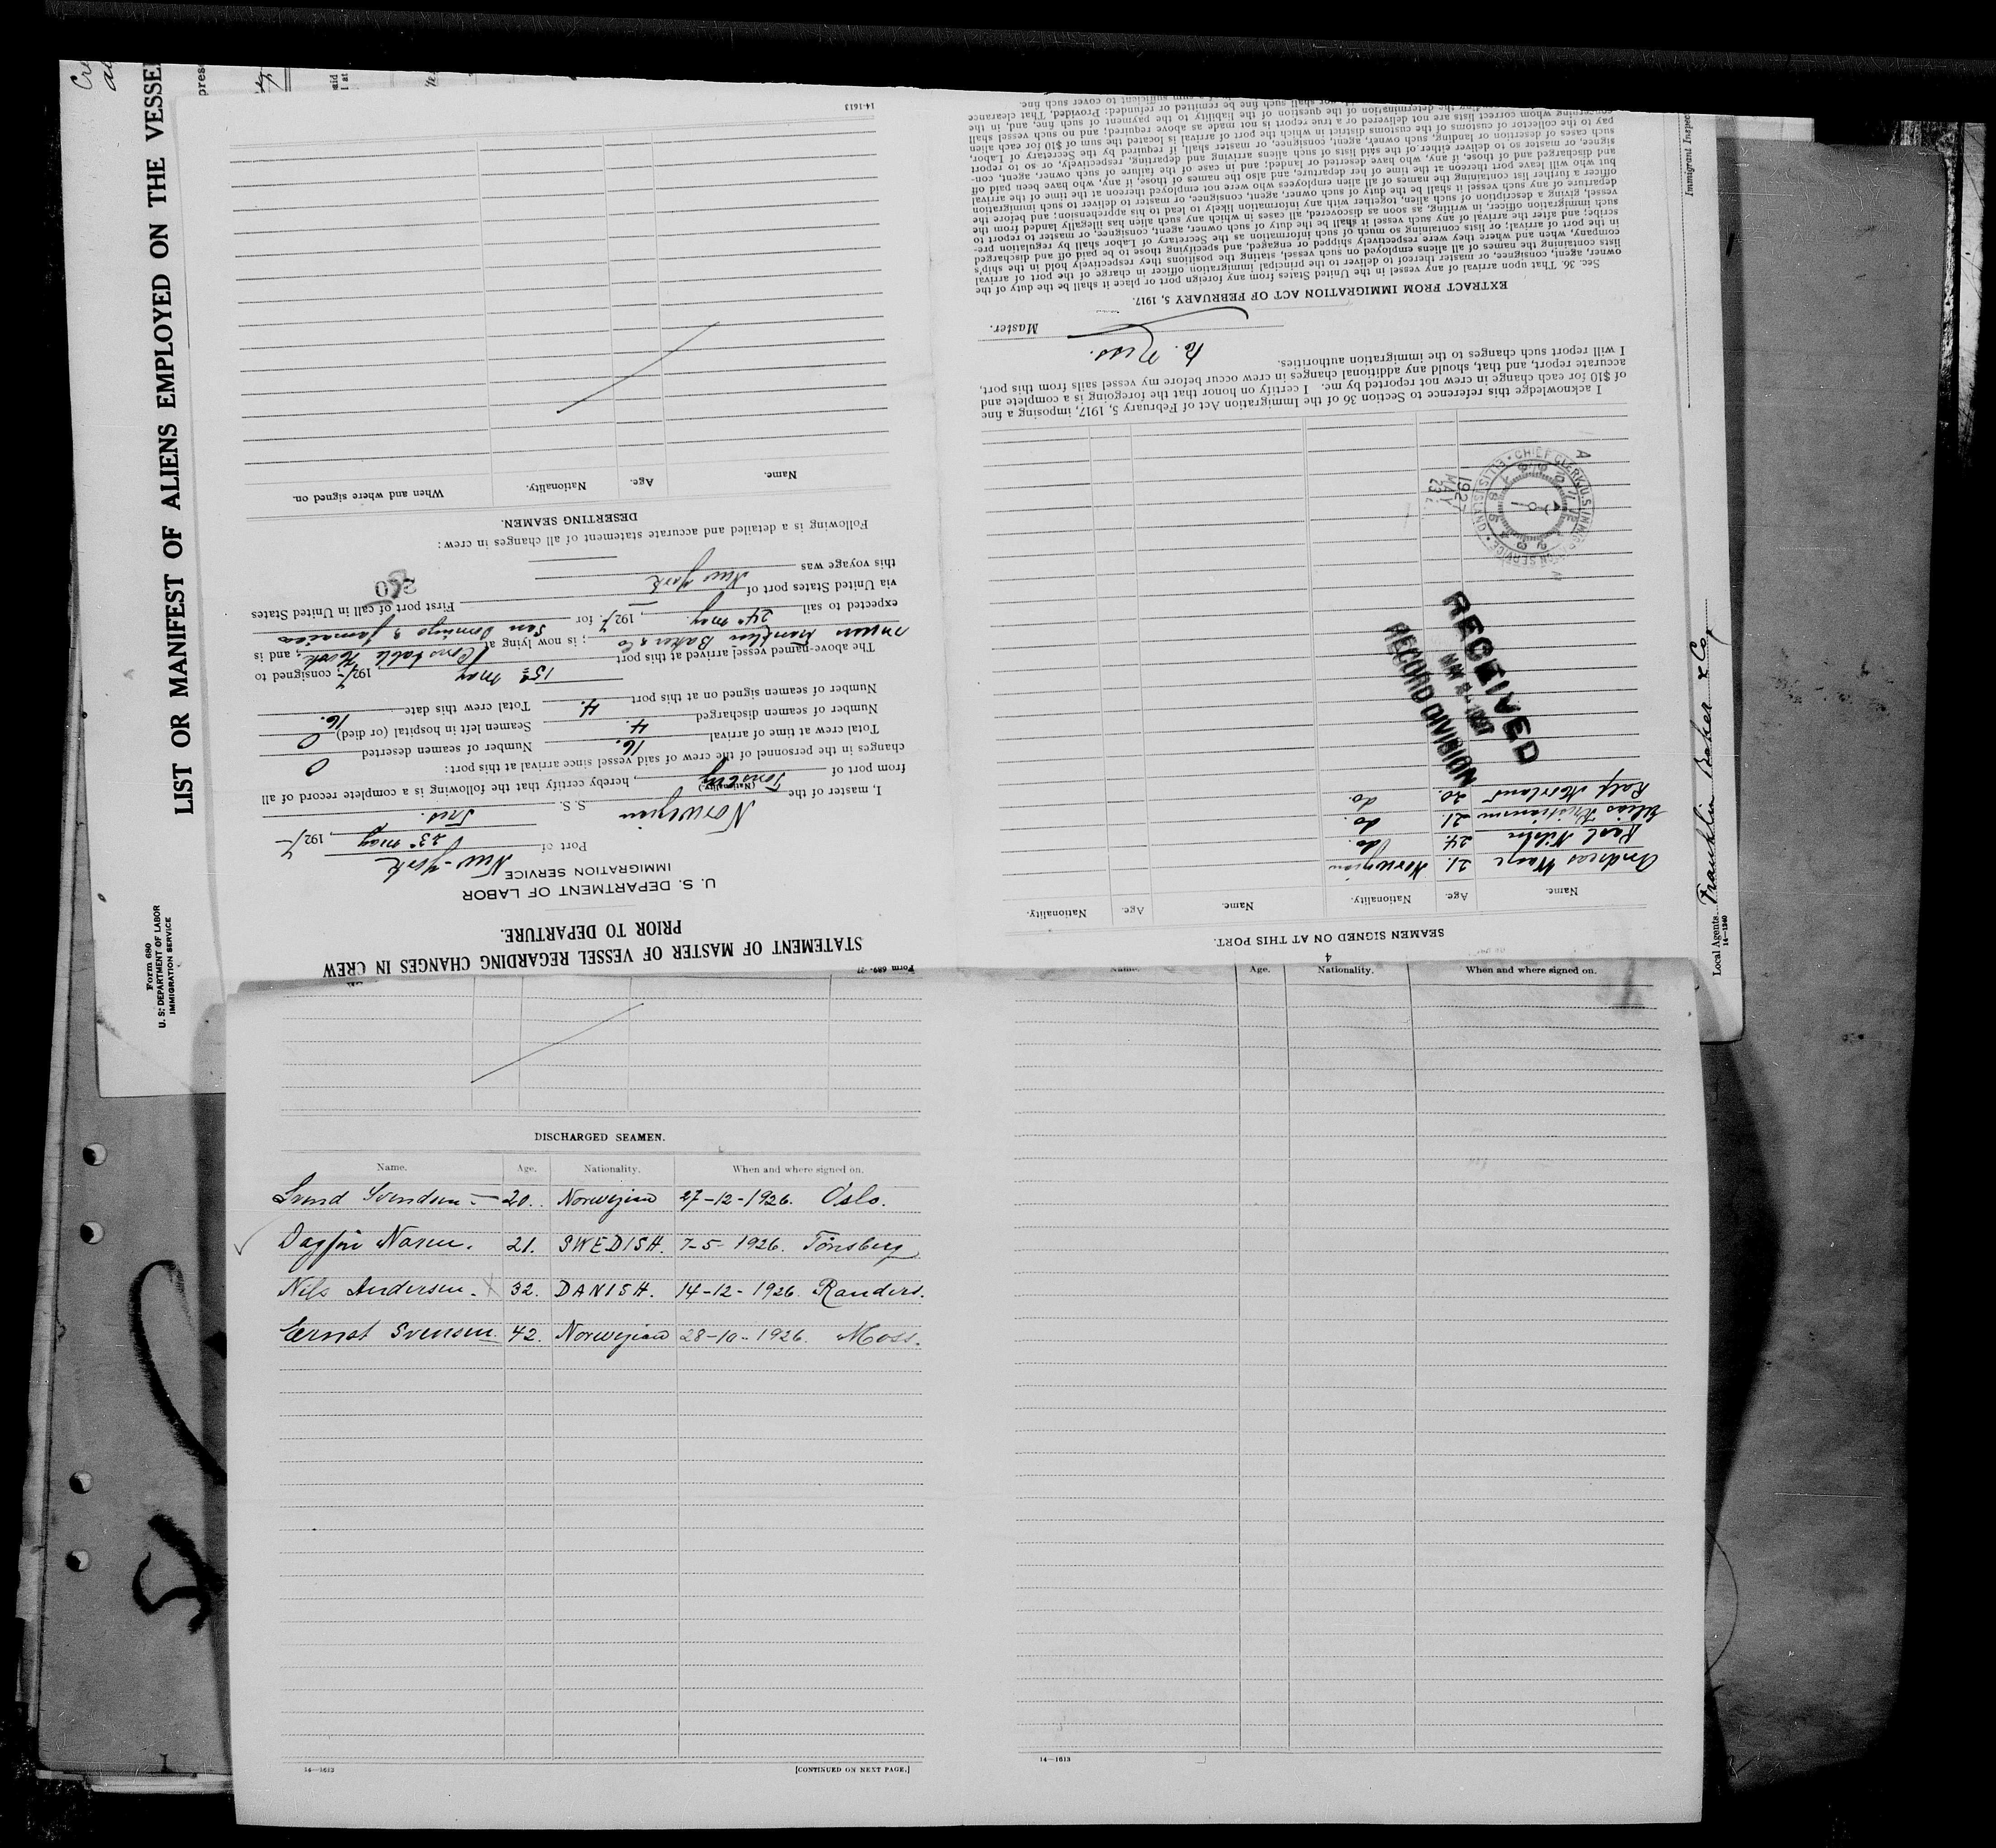 LIST OR MANIFEST OF ALIENS EMPLOYED ON THE VESSEL
Form 680
U. S. DEPARTMENT OF LABOR
IMMIGRATION SERVICE
Local Agents Franklin Baker & Co
14-1240
Immigrant Inspec
Form 689
STATEMENT OF MASTER OF VESSEL REGARDING CHANGES IN CREW
PRIOR TO DEPARTURE.
U. S. DEPARTMENT OF LABOR
IMMIGRATION SERVICE
Port of New-York
23d May, 1927
Norwegian S. S.
(Nationality)
I, master of the
from port of Tönsberg, hereby certify that the following is a complete record of all
changes in the personnel of the crew of said vessel since arrival at this port:
Total crew at time of arrival 16. Number of seamen deserted 0
Number of seamen discharged 4. Seamen left in hospital (or died) 0
Number of seamen signed on at this port 4. Total crew this date 16.
The above-named vessel arrived at this port 15th May, 1927, consigned to
Franklin Baker & Co; is now lying at Constable Hook, and is
expected to sail 24th May, 1927, for San Domingo & Jamaica
via United States port of New York First port of call in United States
this voyage was
Following is a detailed and accurate statement of all changes in crew:
DESERTING SEAMEN.
Name. Age. Nationality. When and where signed on.
14-1613
SEAMEN SIGNED ON AT THIS PORT.
4
Name. Age. Nationality. Name. Age. Nationality.
Andreas Waage 21. Norwegian
Karl Nilsen 24. do.
Elias Kristiansen 21. do.
Ralf Moerland 20. do.
RECEIVED
RECORD DIVISION
CHIEF CLERK U.S. IMMIGRATION SERVICE ELLIS ISLAND
1927
MAY
23
I acknowledge this reference to Section 36 of the Immigration Act of February 5, 1917, imposing a fine
of $10 for each change in crew not reported by me. I certify on honor that the foregoing is a complete and
accurate report, and that, should any additional changes in crew occur before my vessel sails from this port,
I will report such changes to the immigration authorities.
Master.
EXTRACT FROM IMMIGRATION ACT OF FEBRUARY 5, 1917.
Sec. 36. That upon arrival of any vessel in the United States from any foreign port or place it shall be the duty of the
owner, agent, consignee, or master thereof to deliver to the principal immigration officer in charge of the port of arrival
lists containing the names of all aliens employed on such vessel, stating the positions they respectively hold in the ship's
company, when and where they were respectively shipped or engaged, and specifying those to be paid off and discharged
in the port of arrival; or lists containing so much of such information as the Secretary of Labor shall by regulation pre-
scribe; and after the arrival of any such vessel it shall be the duty of such owner, agent, consignee, or master to report to
such immigration officer, in writing, as soon as discovered, all cases in which any such alien has illegally landed from the
vessel, giving a description of such alien, together with any information likely to lead to his apprehension; and before the
departure of any such vessel it shall be the duty of such owner, agent, consignee, or master to deliver to such immigration
officer a further list containing the names of all alien employees who were not employed thereon at the time of the arrival
but who will leave port thereon at the time of her departure, and also the names of those, if any, who have been paid off
and discharged and of those, if any, who have deserted or landed; and in case of the failure of such owner, agent, con-
signee, or master so to deliver either of the said lists of such aliens arriving and departing, respectively, or so to report
such cases of desertion or landing, such owner, agent, consignee, or master shall, if required by the Secretary of Labor,
pay to the collector of customs of the customs district in which the port of arrival is located the sum of $10 for each alien
concerning whom correct lists are not delivered or a true report is not made as above required; and no such vessel shall
pending the determination of the question of the liability to the payment of such fine, and, in the
nor shall such fine be remitted or refunded: Provided, That clearance
sum sufficient to cover such fine.
Name. Age. Nationality. When and where signed on.
DISCHARGED SEAMEN.
Name. Age. Nationality. When and where signed on.
Svend Svendsen 20. Norwegian 27-12-1926. Oslo.
Dagfin Næsen. 21. SWEDISH. 7-5-1926. Tönsberg
Nils Andersen. 32. DANISH. 14-12-1926. Randers.
Ernst Svensen. 42. Norwegian 28-10-1926. Moss.
14—1613
[CONTINUED ON NEXT PAGE.]
14—1613